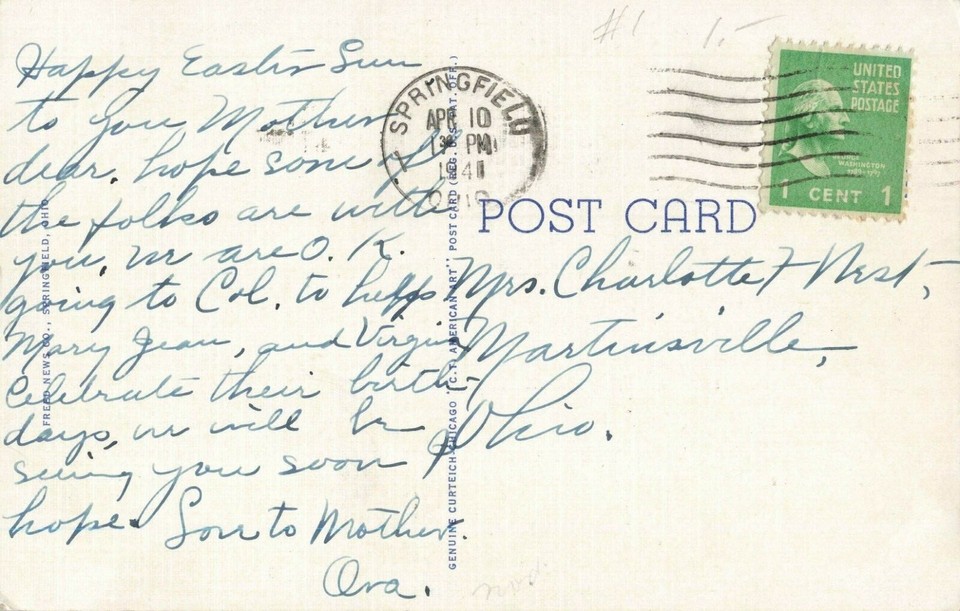 #1 1.-
Happy Easter Sun
to you, Mother
dear, hope some of
the folks are with
you, we are O.K.
going to Col. to help
Mary Jean, and Virginia
celebrate their birth-
days, we will be
seeing you soon
hope. Love to Mother.
Ova.
FREED NEWS CO., SPRINGFIELD, OHIO
GENUINE CURTEICH-CHICAGO "C.T. AMERICAN ART" POST CARD (REG. U.S. PAT. OFF.)
SPRINGFIELD
APR 10
PM
1941
OHIO
UNITED
STATES
POSTAGE
GEORGE
WASHINGTON
1789-1797
1 CENT 1
POST CARD
Mrs. Charlotte West,
Martinsville,
Ohio.